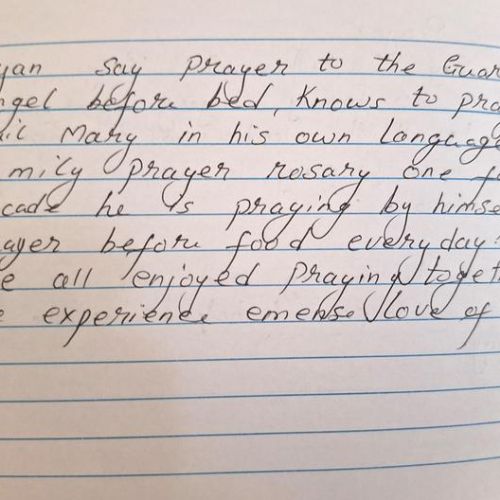 yan say prayer to the Guar
ngel before bed, Knows to pra
il Mary in his own language
mily prayer rosary one
cade he is praying by himse
ayer before food everyday
e all enjoyed praying toget
e experience emense love of